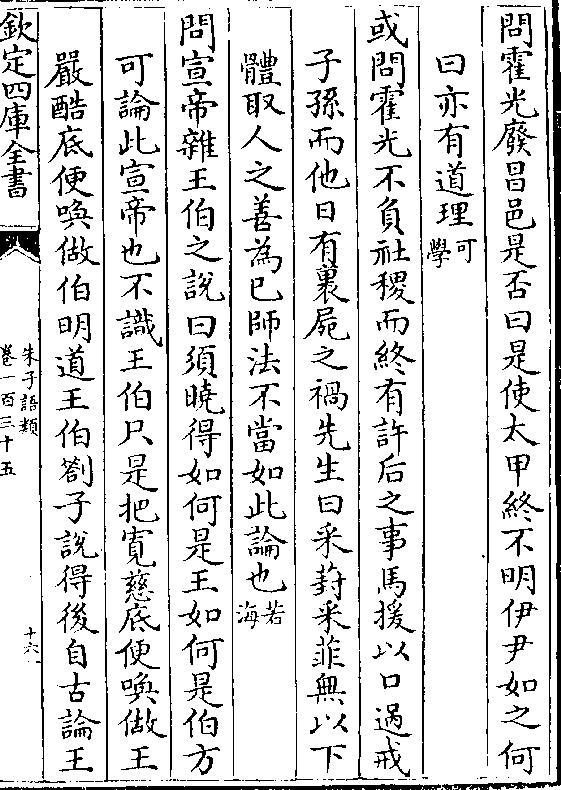 問霍光廢昌邑是否曰是使太甲終不明伊尹如之何
曰亦有道理可學
或問霍光不負社稷而終有許后之事馬援以口過戒
子孫而他日有裹屍之禍先生曰采葑采菲無以下
體取人之善為已師法不當如此論也若海
問宣帝雜王伯之說曰須曉得如何是王如何是伯方
可論此宣帝也不識王伯只是把寛慈底便喚做王
嚴酷底便喚做伯明道王伯劄子說得後自古論王
欽定四庫全書
朱子語類
卷一百三十五
十六